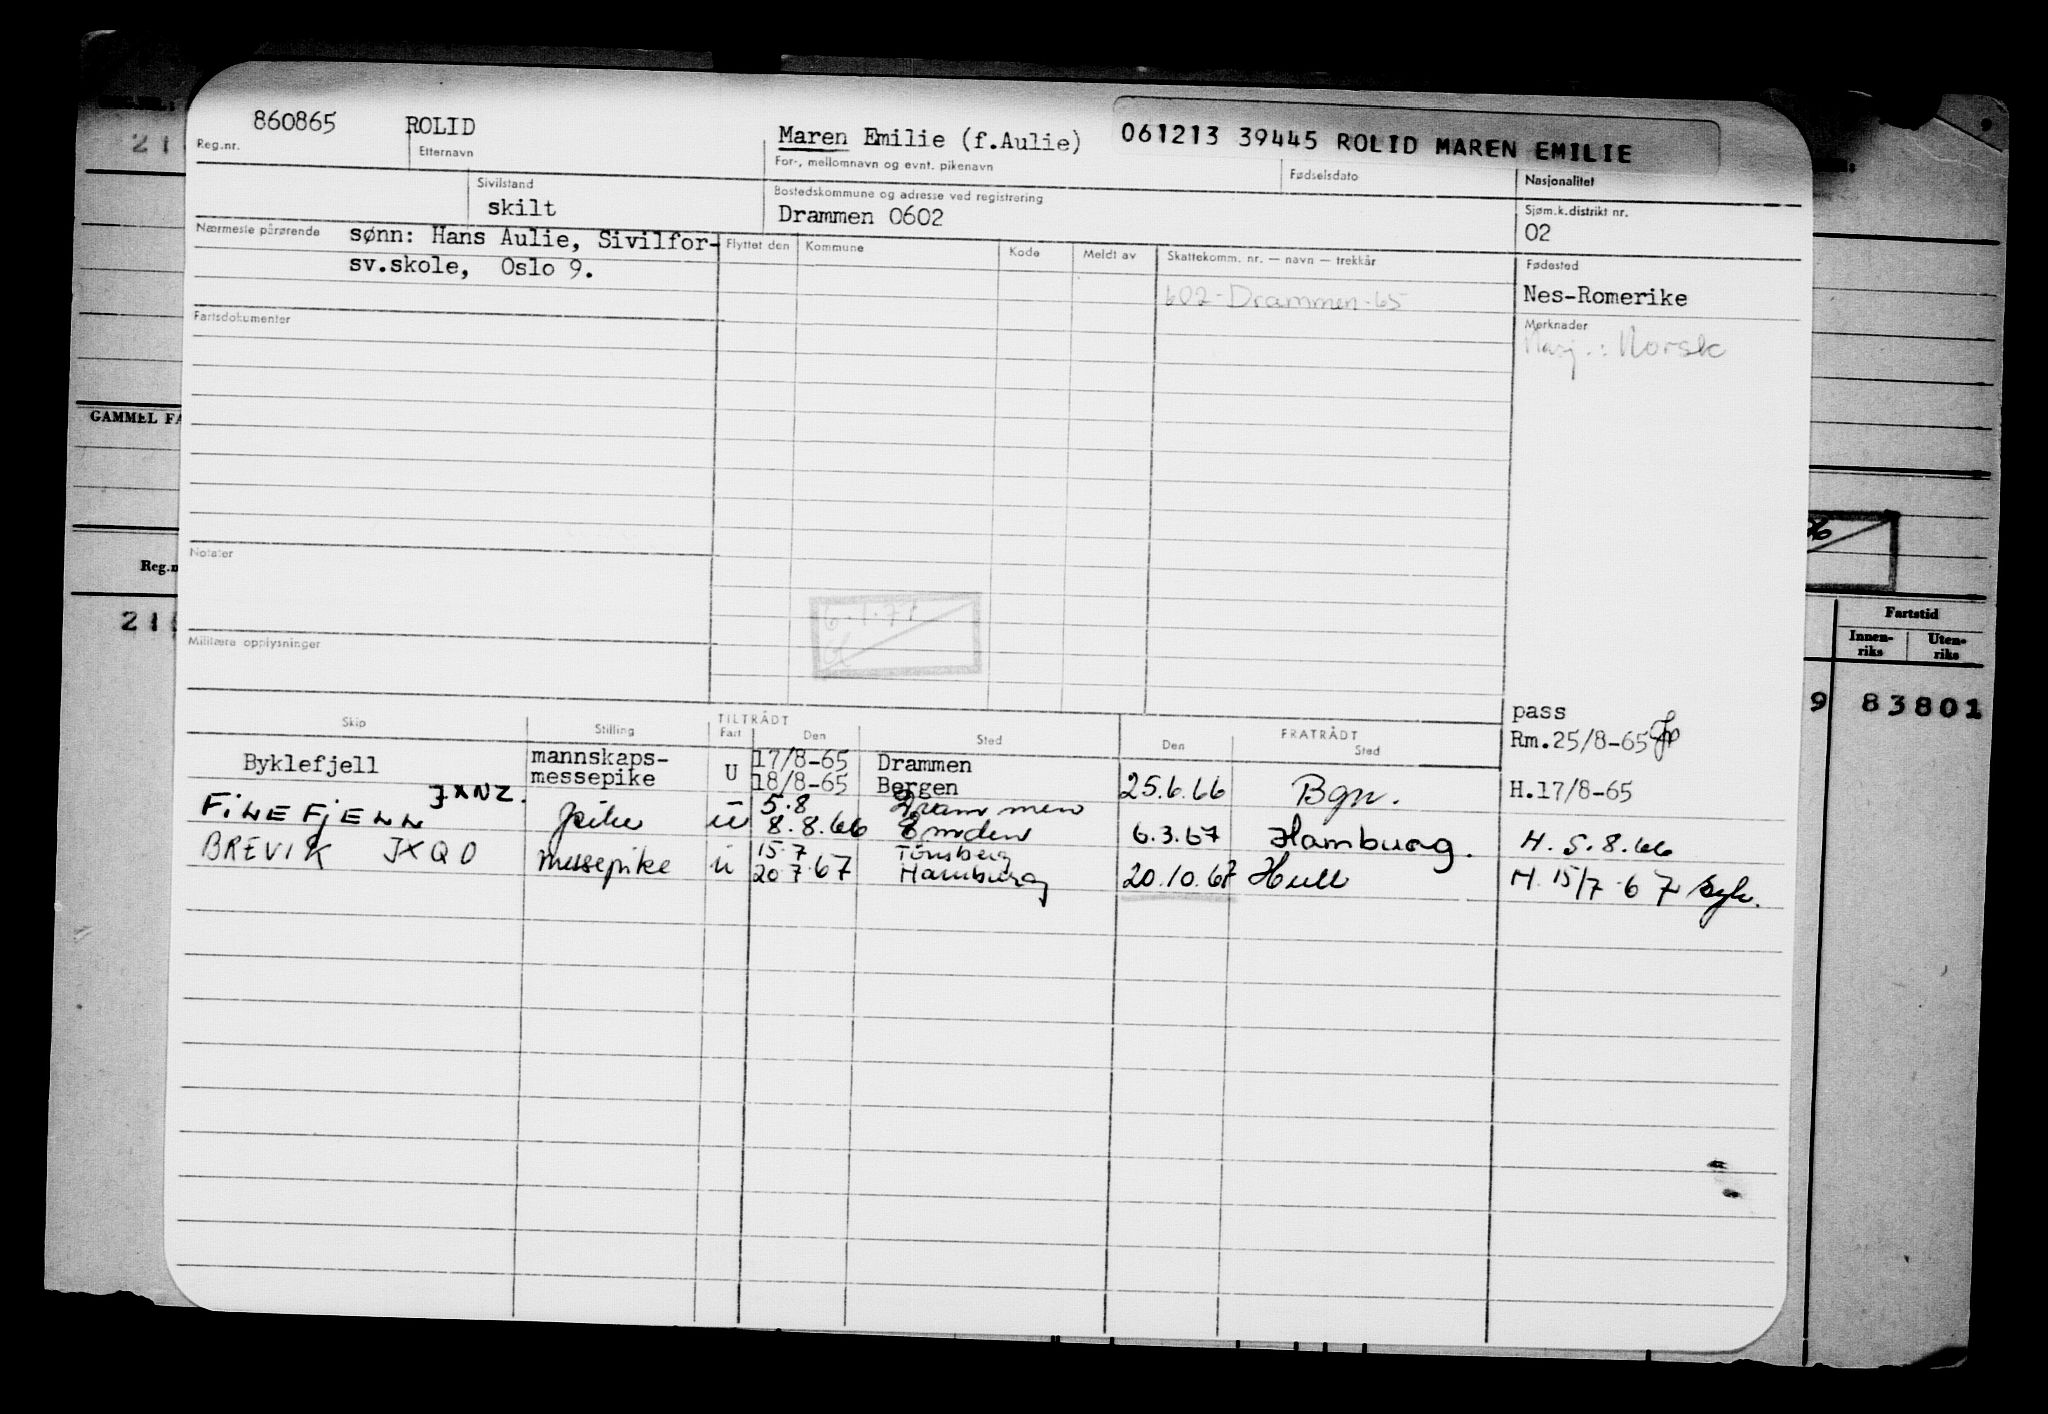 860865 ROLID Maren Emilie (f.Aulie) 061213 39445 ROLID MAREN EMILIE
Reg.nr. Etternavn For-, mellomnavn og evnt. pikenavn Fødselsdato Nasjonalitet
Sivilstand Bostedskommune og adresse ved registrering Sjøm.k.distrikt nr.
skilt Drammen 0602 02
Nærmeste pårørende sønn: Hans Aulie, Sivilfor- Flyttet den Kommune Kode Meldt av Skattekomm. nr. — navn — trekkår Fødested
sv.skole, Oslo 9.
602-Drammen-65 Nes-Romerike
Fartsdokumenter Merknader
Nasj.: Norsk
GAMMEL FA
Notater
Reg.n
6.1.71
Fartstid
21
Militære opplysninger
Innen-riks Uten-riks
9 83801
pass
Skip Stilling TILTRÅDT Fart Den Sted Den FRATRÅDT Sted
Rm.25/8-65
Byklefjell mannskaps- U 17/8-65 Drammen
messepike 18/8-65 Bergen 25.6.66 Bgn. H.17/8-65
FILEFJELL JXNZ. pike u 5.8 Drammen
8.8.66 Emden 6.3.67 Hamburg. H. 5.8.66
BREVIK JXQO messepike u 15.7 Tønsberg
20.7.67 Hamburg 20.10.67 Hull H. 15/7-67